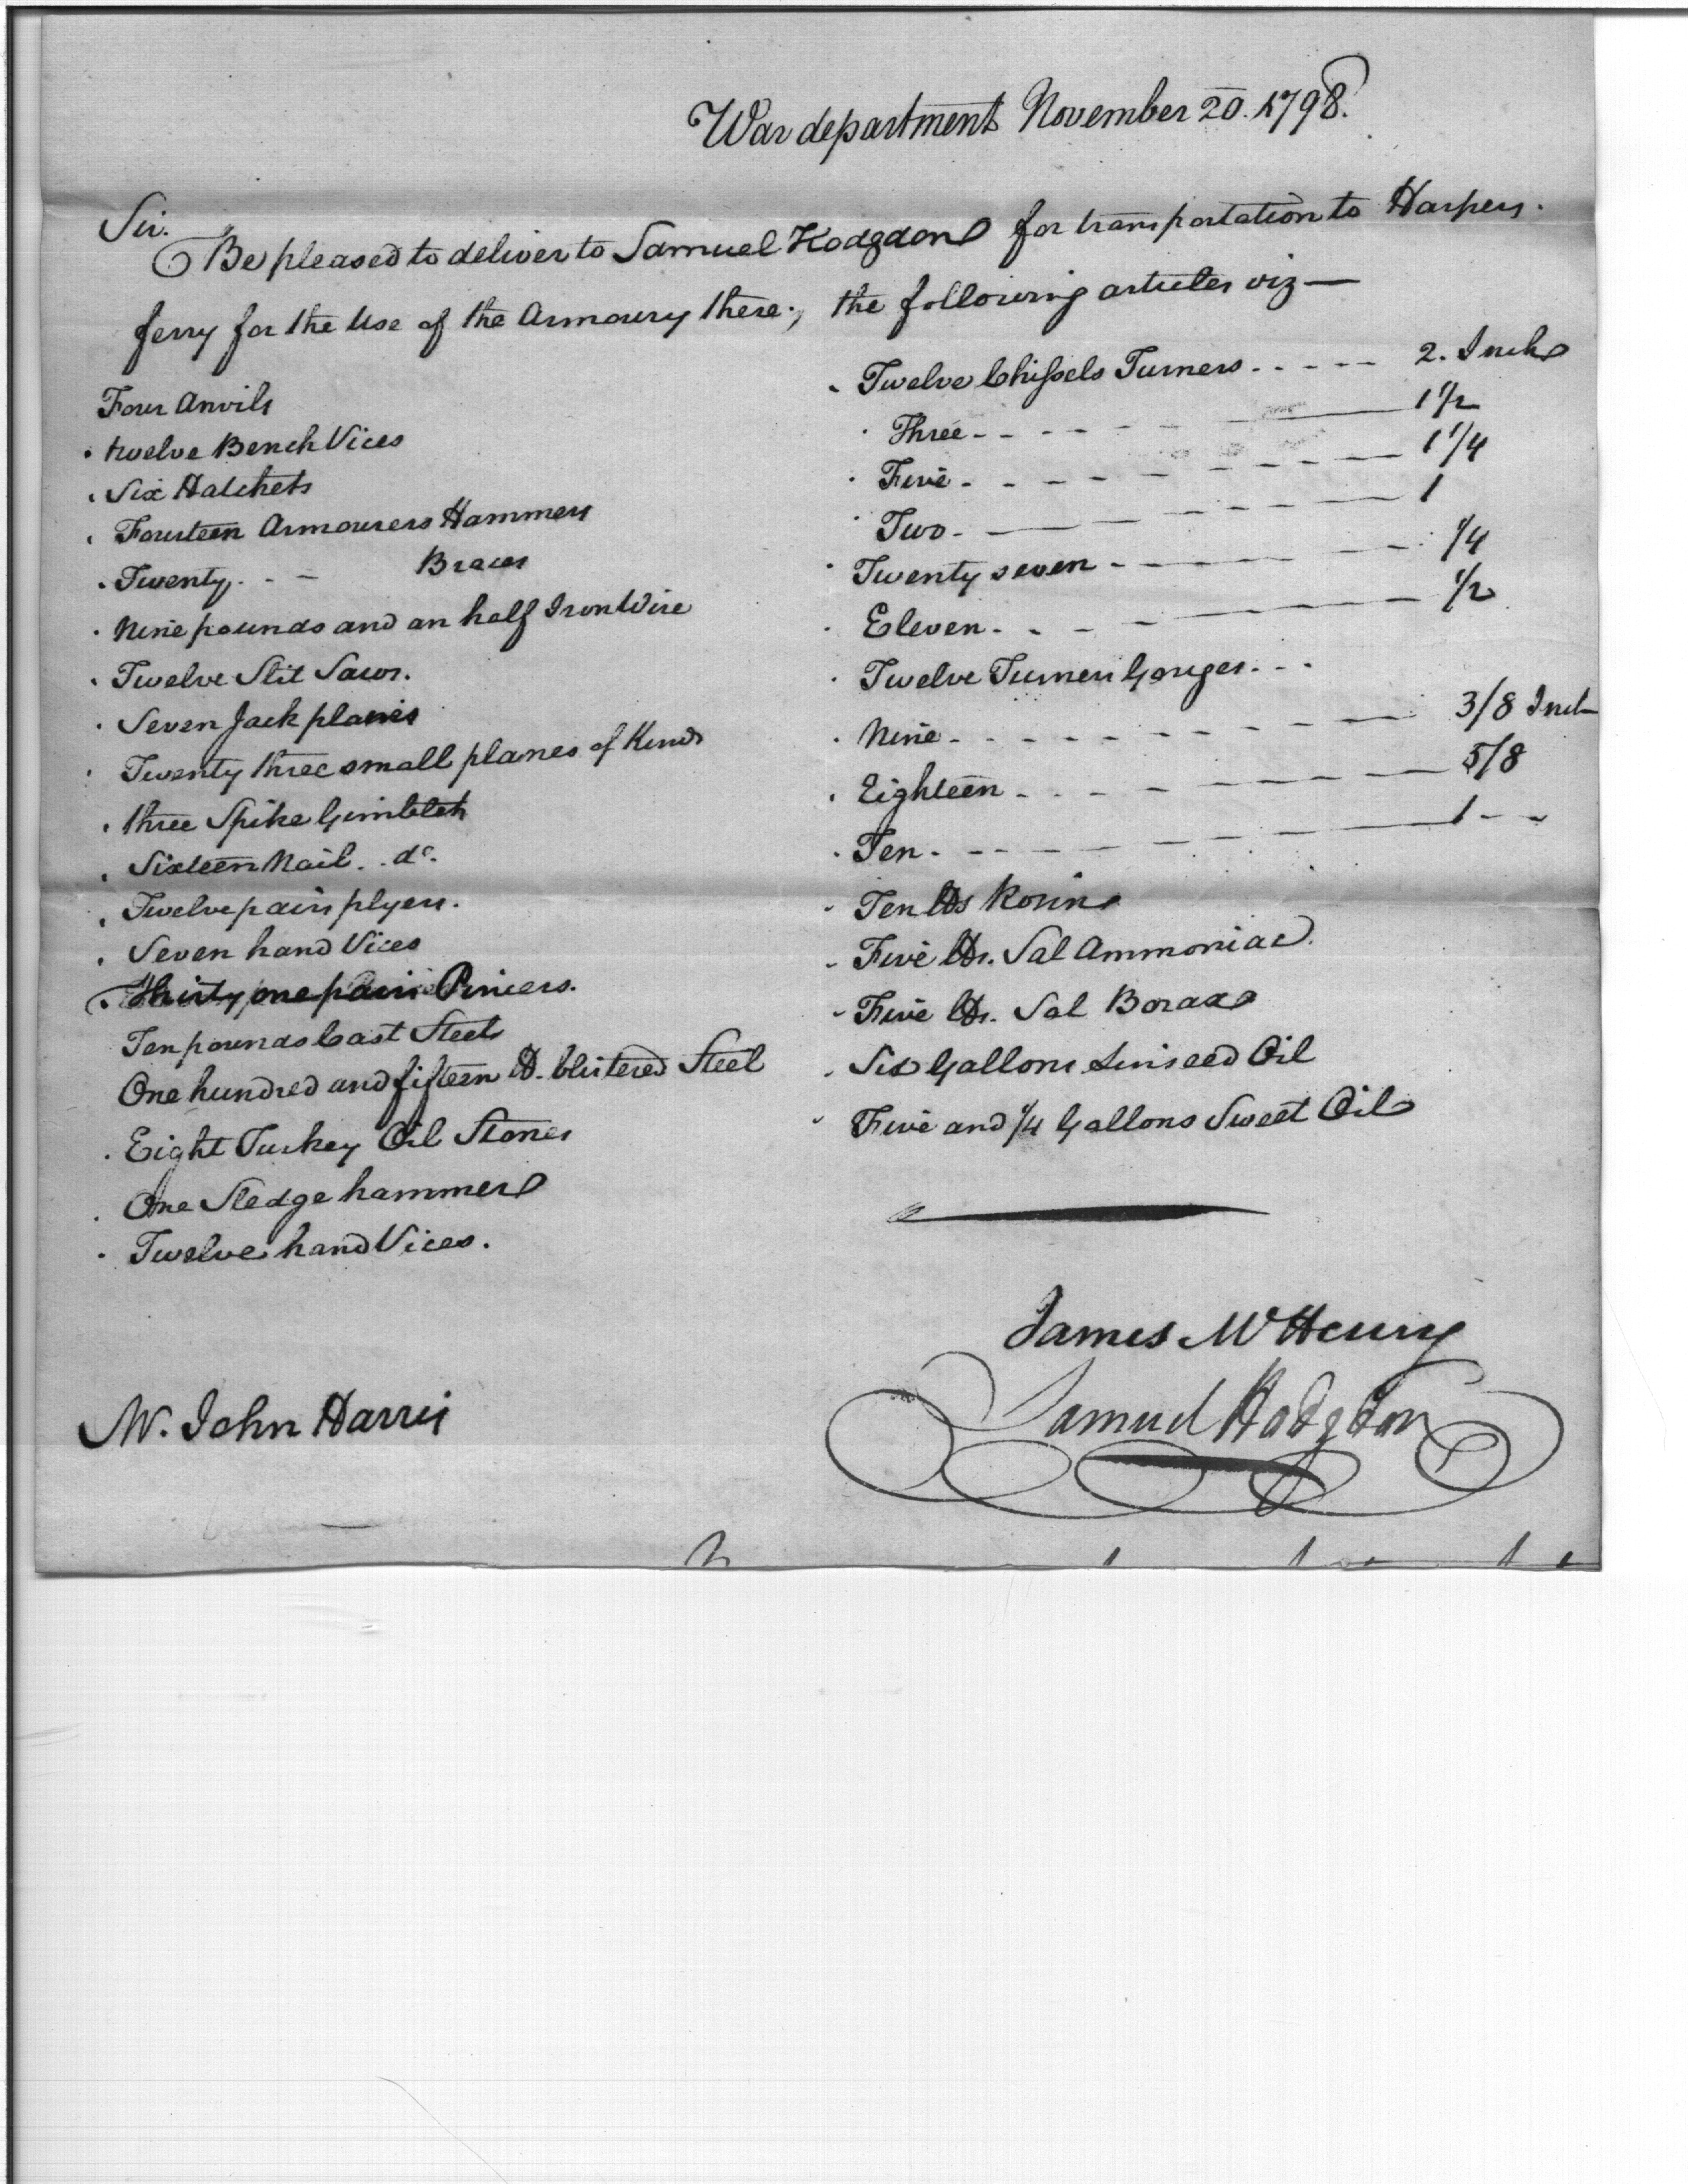 War department November 20. 1798.
Sir.
Be pleased to deliver to Samuel Hodgdon for transportation to Harpers.
ferry for the Use of the Armoury there; the following articles viz —
Four Anvils
twelve Bench Vices
Six Hatchets
Fourteen Armourers Hammers
Twenty. - - Braces
Nine pounds and an half Iron Wire
Twelve Slit Saws.
Seven Jack planes
Twenty three small planes of Kinds
three Spike Gimblets
Sixteen Nail. . do.
Twelve pairs plyers.
Seven hand Vices
Thirty one pair Pincers.
Ten pounds Cast Steel
One hundred and fifteen lb. blistered Steel
Eight Turkey Oil Stones
One Sledge hammer
Twelve hand Vices.
Twelve Chissels Turners - - - - - 2. Inch
Three - - - - - 1 1/2
Five - - - - - 1 1/4
Two - - - - - 1
Twenty seven - - - - - 1/4
Eleven - - - - - 1/2
Twelve Turners Gouges - - -
Nine - - - - - 3/8 Inch
Eighteen - - - - - 5/8
Ten - - - - - 1 - -
Ten lbs Rosin
Five lbs. Sal Ammoniac.
Five lbs. Sal Borax
Six Gallons Linseed Oil
Five and 1/4 Gallons Sweet Oil
James McHenry
Samuel Hodgdon
Mr. John Harris